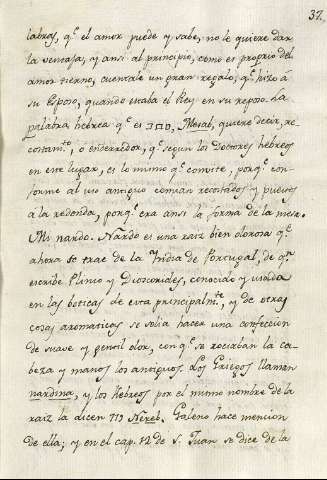 37.
labras, q.e el amor puede y sabe, no le quiere dar
la ventaja, y ansi al principio, como es proprio del
amor tierno, cuentale un gran regalo, q.e hizo á
su Esposo, quando estaba el Rey en su reposo. La
palabra hebrea q.e es מסב, Mesab, quiere decir, re-
costam.to, ó encerrador, q.e segun los Doctores hebreos
en este lugar, es lo mismo q.e convite; porq.e con-
forme al uso antiguo comian recostados y puestos
á la redonda, porq.e era ansi la forma de la mesa.
Mi nardo. Nardo es una raiz bien olorosa q.e
ahora se trae de la India de Portugal, de q.n
escribe Plinio y Dioscorides, conocido y usado
en las boticas de esta principalm.te, y de otras
cosas aromaticas se solia hacer una confeccion
de suave y gentil olor, con q.e se rociaban la ca-
beza y manos los antiguos. Los Griegos llaman
nardina, y los Hebreos por el mismo nombre de la
raiz la dicen נרד Nered. Galeno hace mencion
de ella; y en el cap. 12 de S. Juan se dice de la